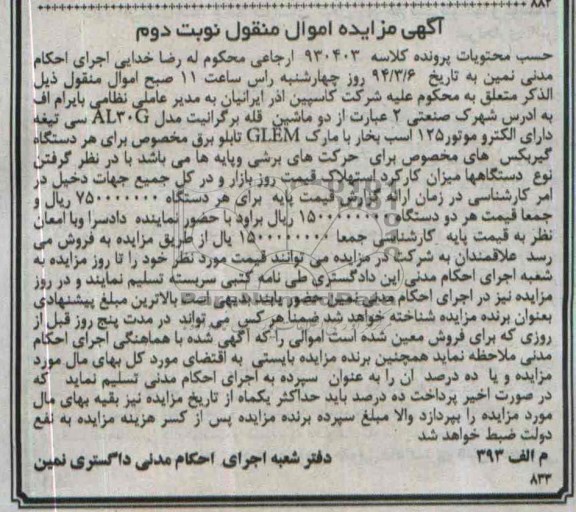 ۸۸۲
آگهی مزایده اموال منقول نوبت دوم
حسب محتویات پرونده کلاسه ۹۳۰۴۰۳ ارجاعی محکوم له رضا خدایی اجرای احکام
مدنی نمین به تاریخ ۹۴/۳/۶ روز چهارشنبه راس ساعت ۱۱ صبح اموال منقول ذیل
الذکر متعلق به محکوم علیه شرکت کاسپین اذر ایرانیان به مدیر عاملی نظامی بایرام اف
به ادرس شهرک صنعتی ۲ عبارت از دو ماشین قله برگرانیت مدل AL۳۰G سی تیغه
دارای الکترو موتور۱۲۵ اسب بخار با مارک GLEM تابلو برق مخصوص برای هر دستگاه
گیربکس های مخصوص برای حرکت های برشی وپایه ها می باشد با در نظر گرفتن
نوع دستگاهها میزان کارکرد استهلاک قیمت روز بازار و در کل جمیع جهات دخیل در
امر کارشناسی در زمان ارائه گزارش قیمت پایه برای هر دستگاه ۷۵۰۰۰۰۰۰۰۰ ریال و
جمعا قیمت هر دو دستگاه ریال براود با حضور نماینده دادسرا وبا امعان
نظر به قیمت پایه کارشناسی جمعا یال از طریق مزایده به فروش می
رسد علاقمندان به شرکت در مزایده می توانند قیمت مورد نظر خود را تا روز مزایده به
شعبه اجرای احکام مدنی این دادگستری طی نامه کتبی سربسته تسلیم نمایند و در روز
مزایده نیز در اجرای احکام مدنی نمین حضور یابند بدیهی است بالاترین مبلغ پیشنهادی
بعنوان برنده مزایده شناخته خواهد شد ضمنا هر کس می تواند در مدت پنج روز قبل از
روزی که برای فروش معین شده است اموالی را که آگهی شده با هماهنگی اجرای احکام
مدنی ملاحظه نماید همچنین برنده مزایده بایستی به اقتضای مورد کل بهای مال مورد
مزایده و یا ده درصد ان را به عنوان سپرده به اجرای احکام مدنی تسلیم نماید که
در صورت اخیر پرداخت ده درصد باید حداکثر یکماه از تاریخ مزایده نیز بقیه بهای مال
مورد مزایده را بپردازد والا مبلغ سپرده برنده مزایده پس از کسر هزینه مزایده به نفع
دولت ضبط خواهد شد
م الف ۳۹۳ دفتر شعبه اجرای احکام مدنی داگستری نمین
۸۳۳